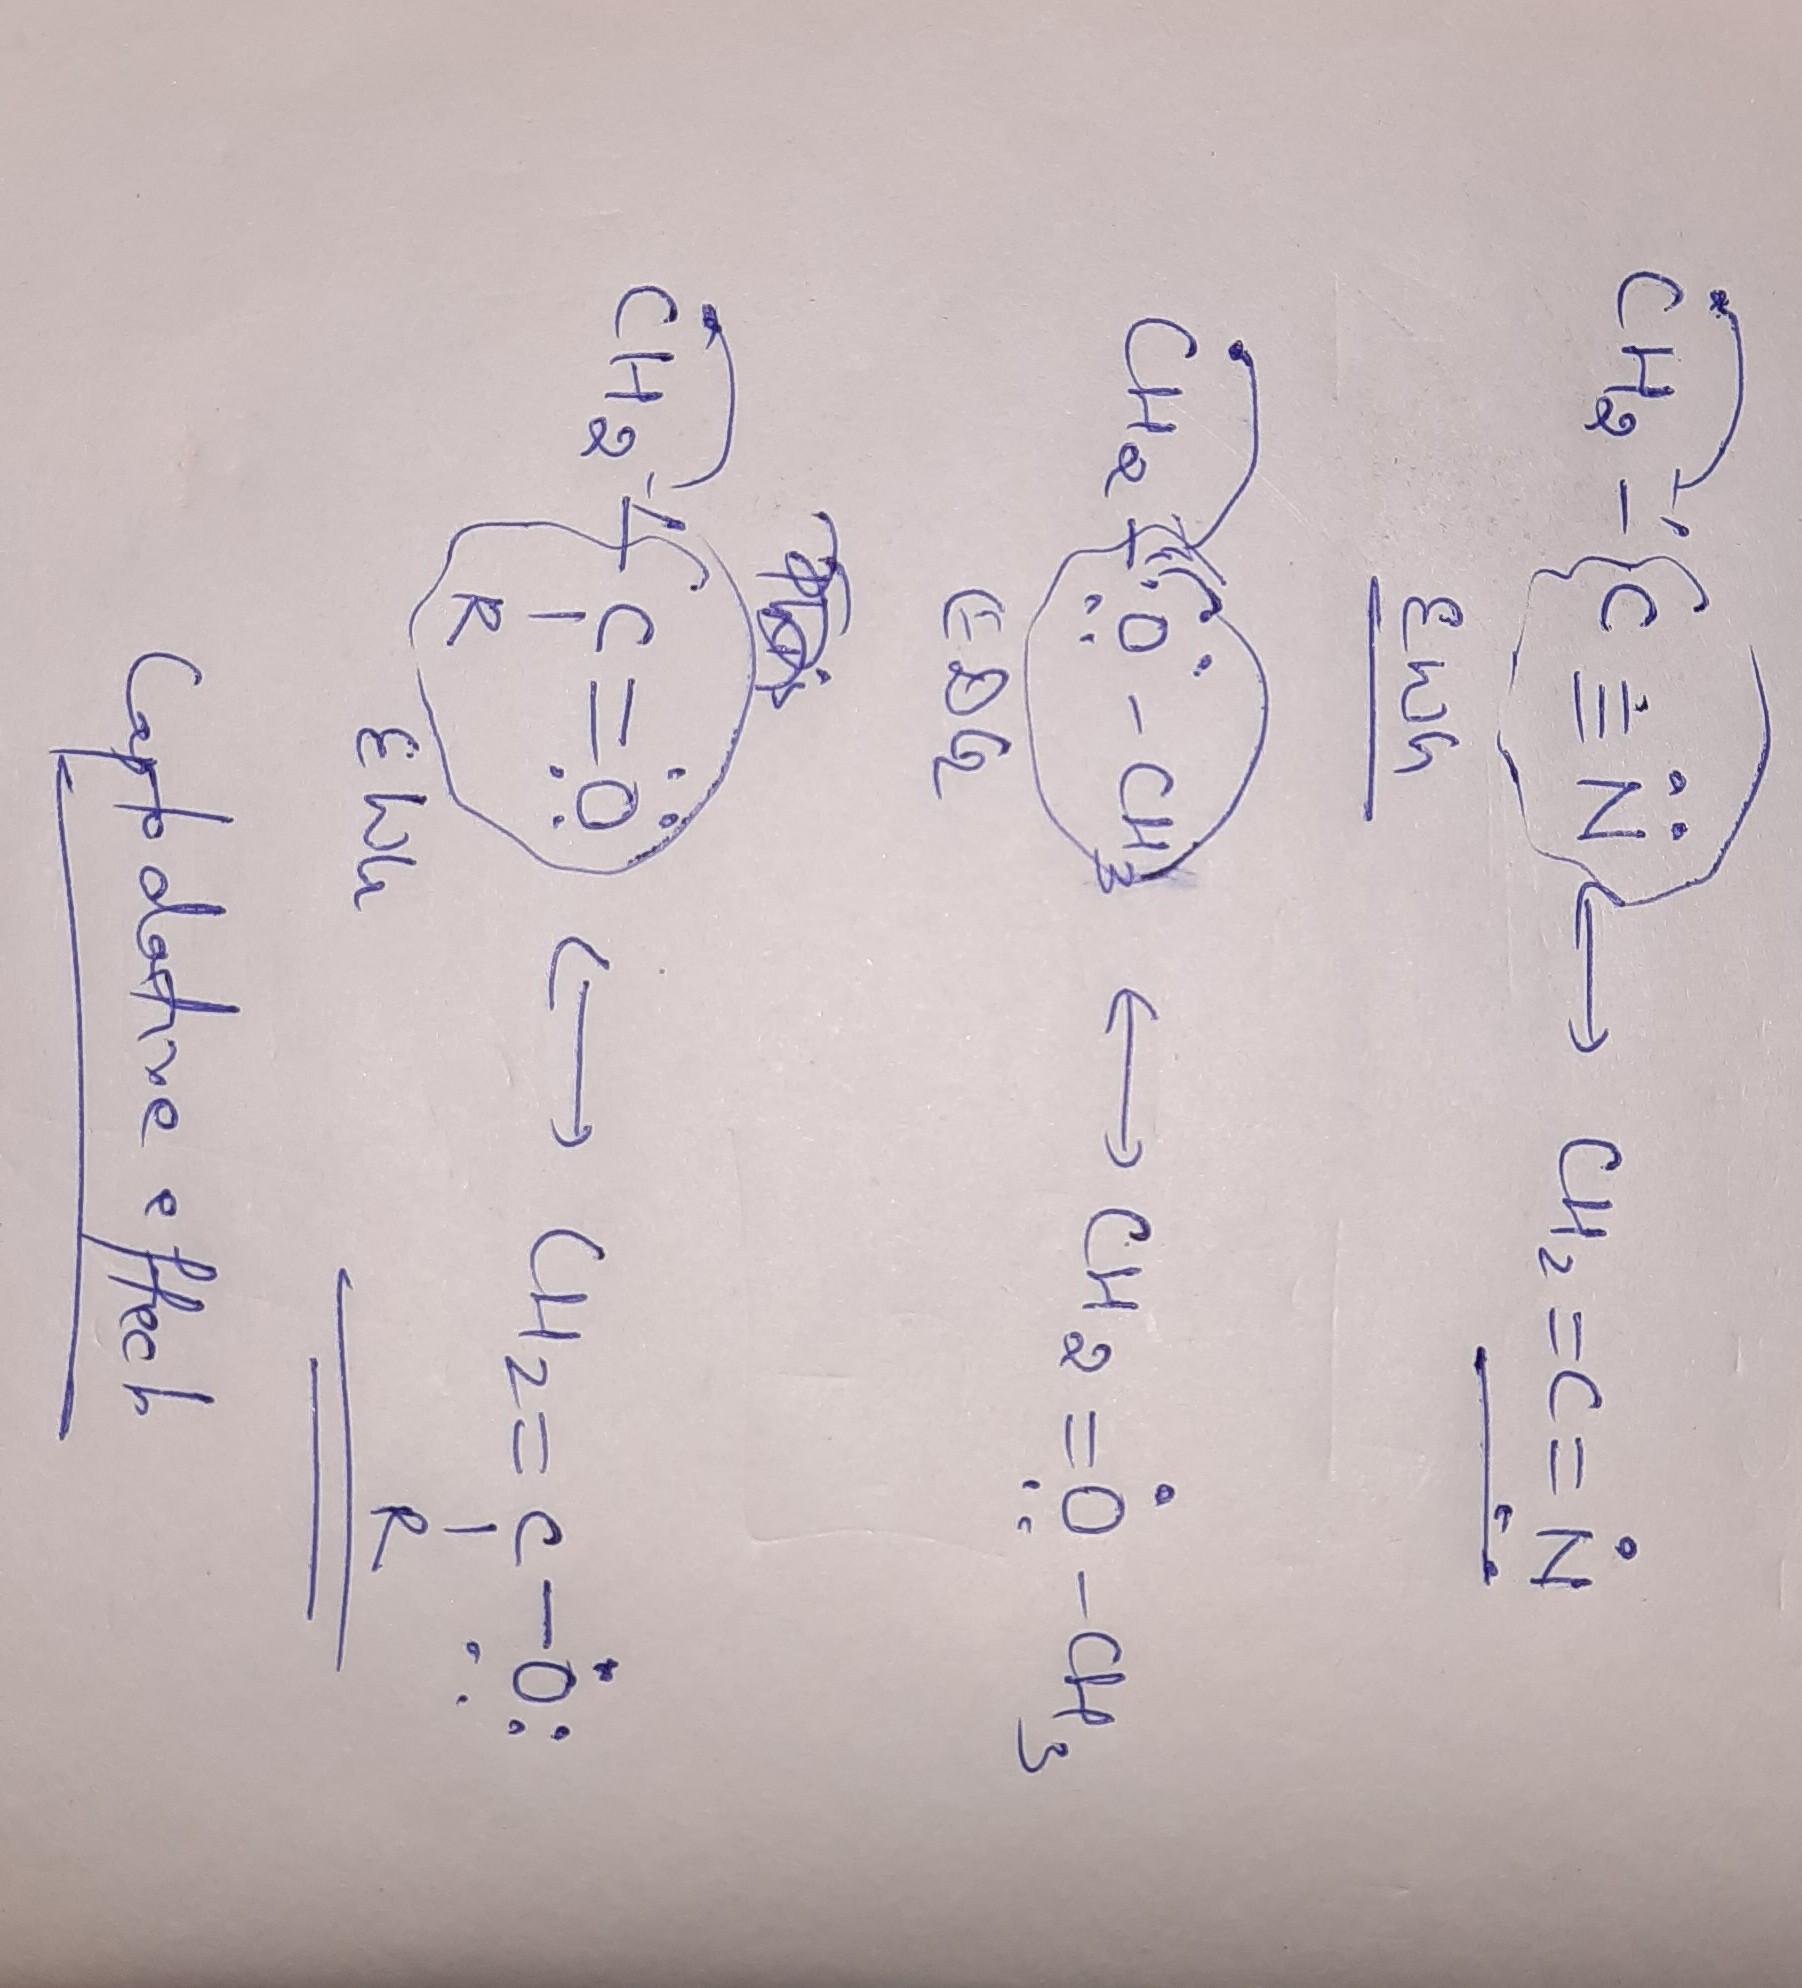 CH2 - C ≡ N ⟷ CH2 = C = N
EWG
CH2 - O - CH3 ⟷ CH2 = O - CH3
EDG
CH2 - C = O ⟷ CH2 = C - O
R R
EWG
Captodative effect